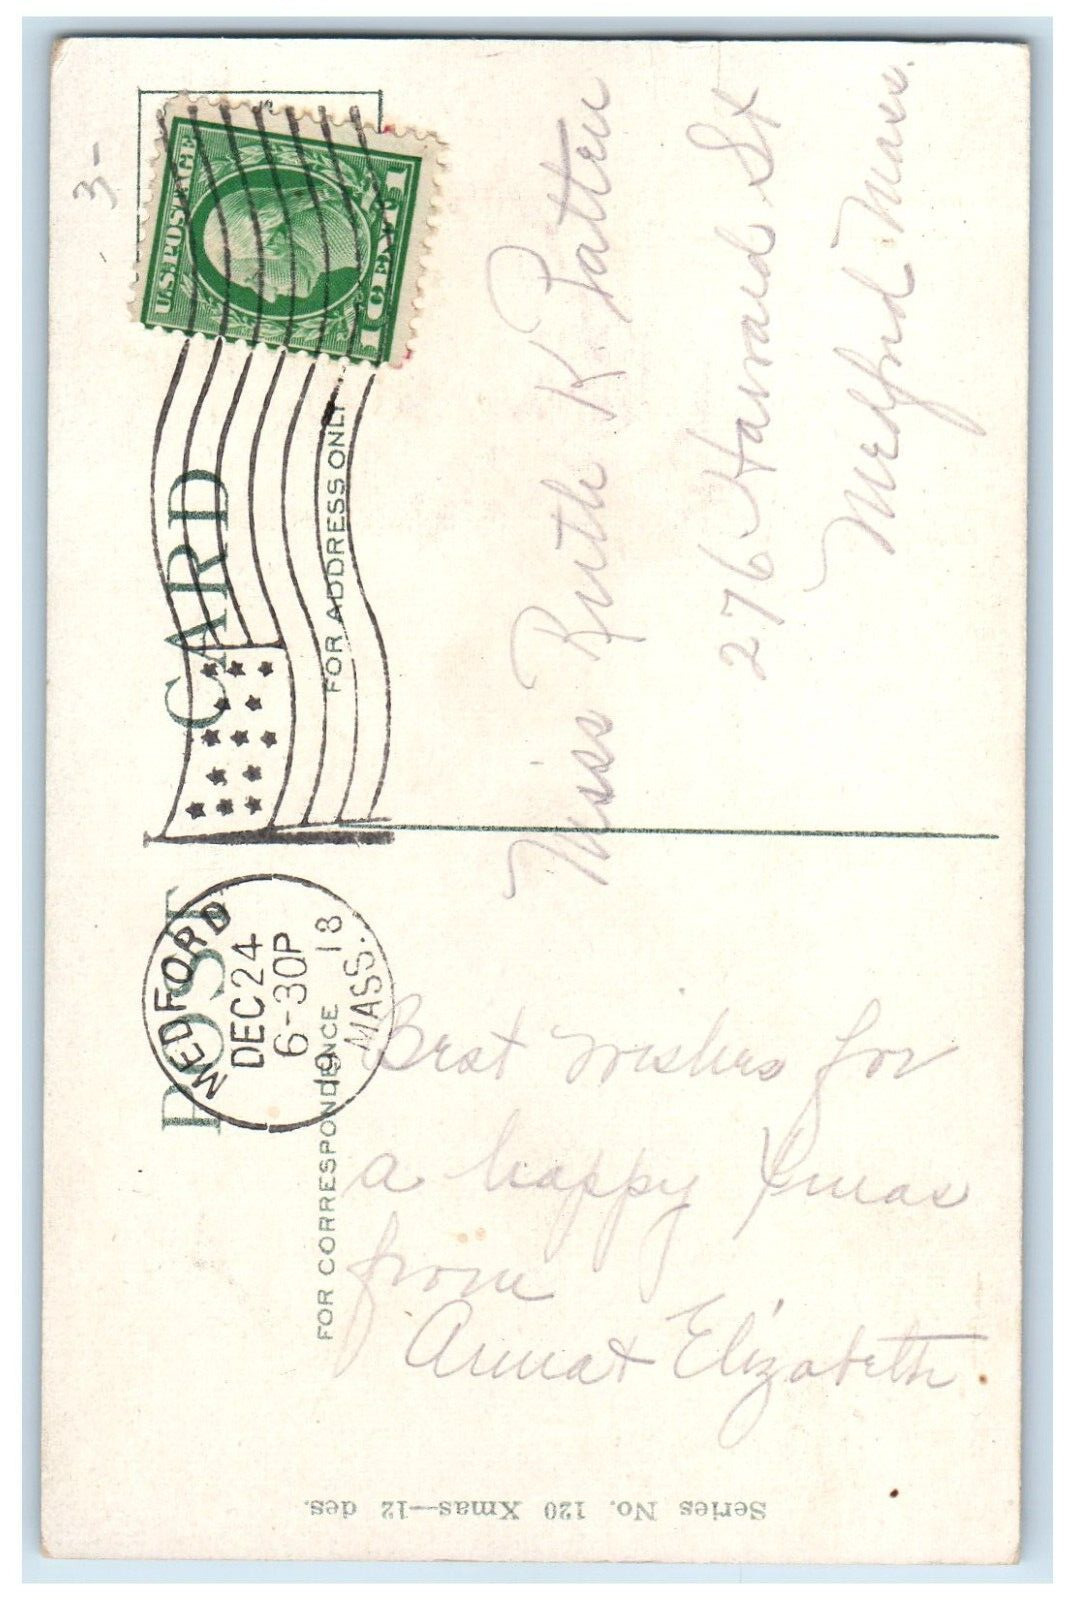 POST CARD
FOR CORRESPONDENCE
FOR ADDRESS ONLY
U.S. POSTAGE
1 CENT 1
MEDFORD
DEC 24
6-30P
19 18
MASS.
3-
Miss Ruth K Patten
276 Harvard St
Medford Mass.
Best wishes for
a happy Xmas
from
Anna + Elizabeth.
Series No. 120 Xmas—12 des.